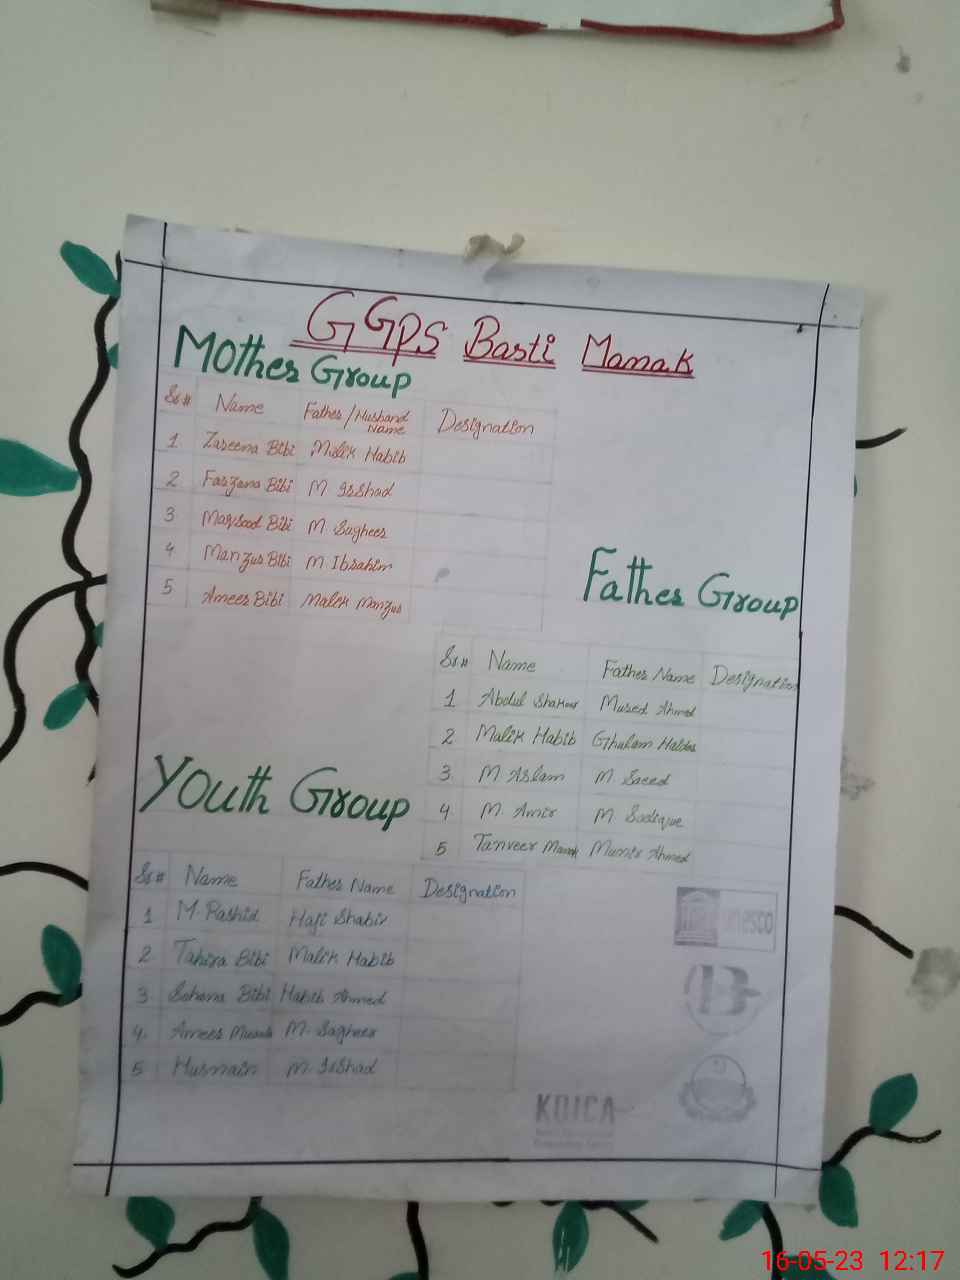 GGPS Basti Manak
Mother Group
Sr# Name Father/Husband Name Designation
1 Zareena Bibi Malik Habib
2 Farzana Bibi M Irshad
3 Maqsood Bibi M Sagheer
4 Manzur Bibi M Ibrahim
5 Ameer Bibi Malik Manzur
Father Group
Sr# Name Father Name Designation
1 Abdul Shakoor Mureed Ahmed
2 Malik Habib Ghulam Haider
3 M Aslam M Saeed
4. M. Amir M. Sadique
5 Tanveer Manak Mumir Ahmed
Youth Group
Sr# Name Father Name Designation
1 M. Rashid Haji Shabir
2 Tahira Bibi Malik Habib
3 Sohana Bibi Habib Ahmed
4. Ameer M. Sagheer
5 Husnain M. Irshad
unesco
KOICA
16-05-23 12:17